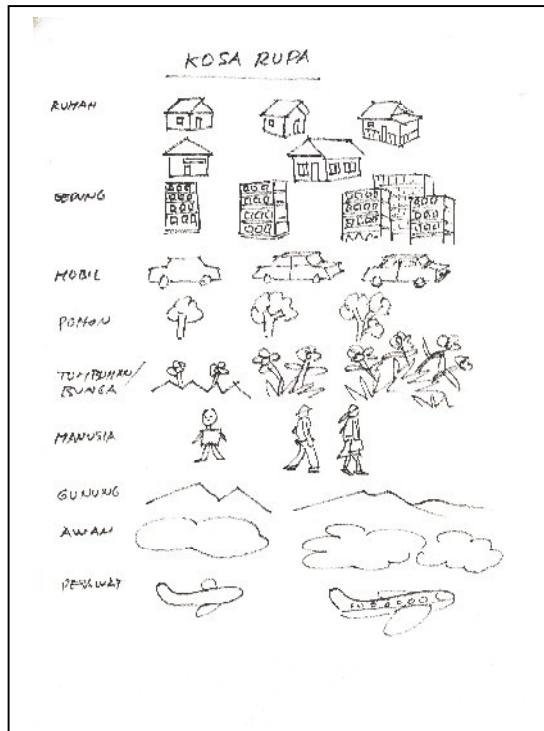 KOSA RUPA
RUMAH
GEDUNG
MOBIL
POHON
TUMBUHAN/
BUNGA
MANUSIA
GUNUNG
AWAN
PESAWAT